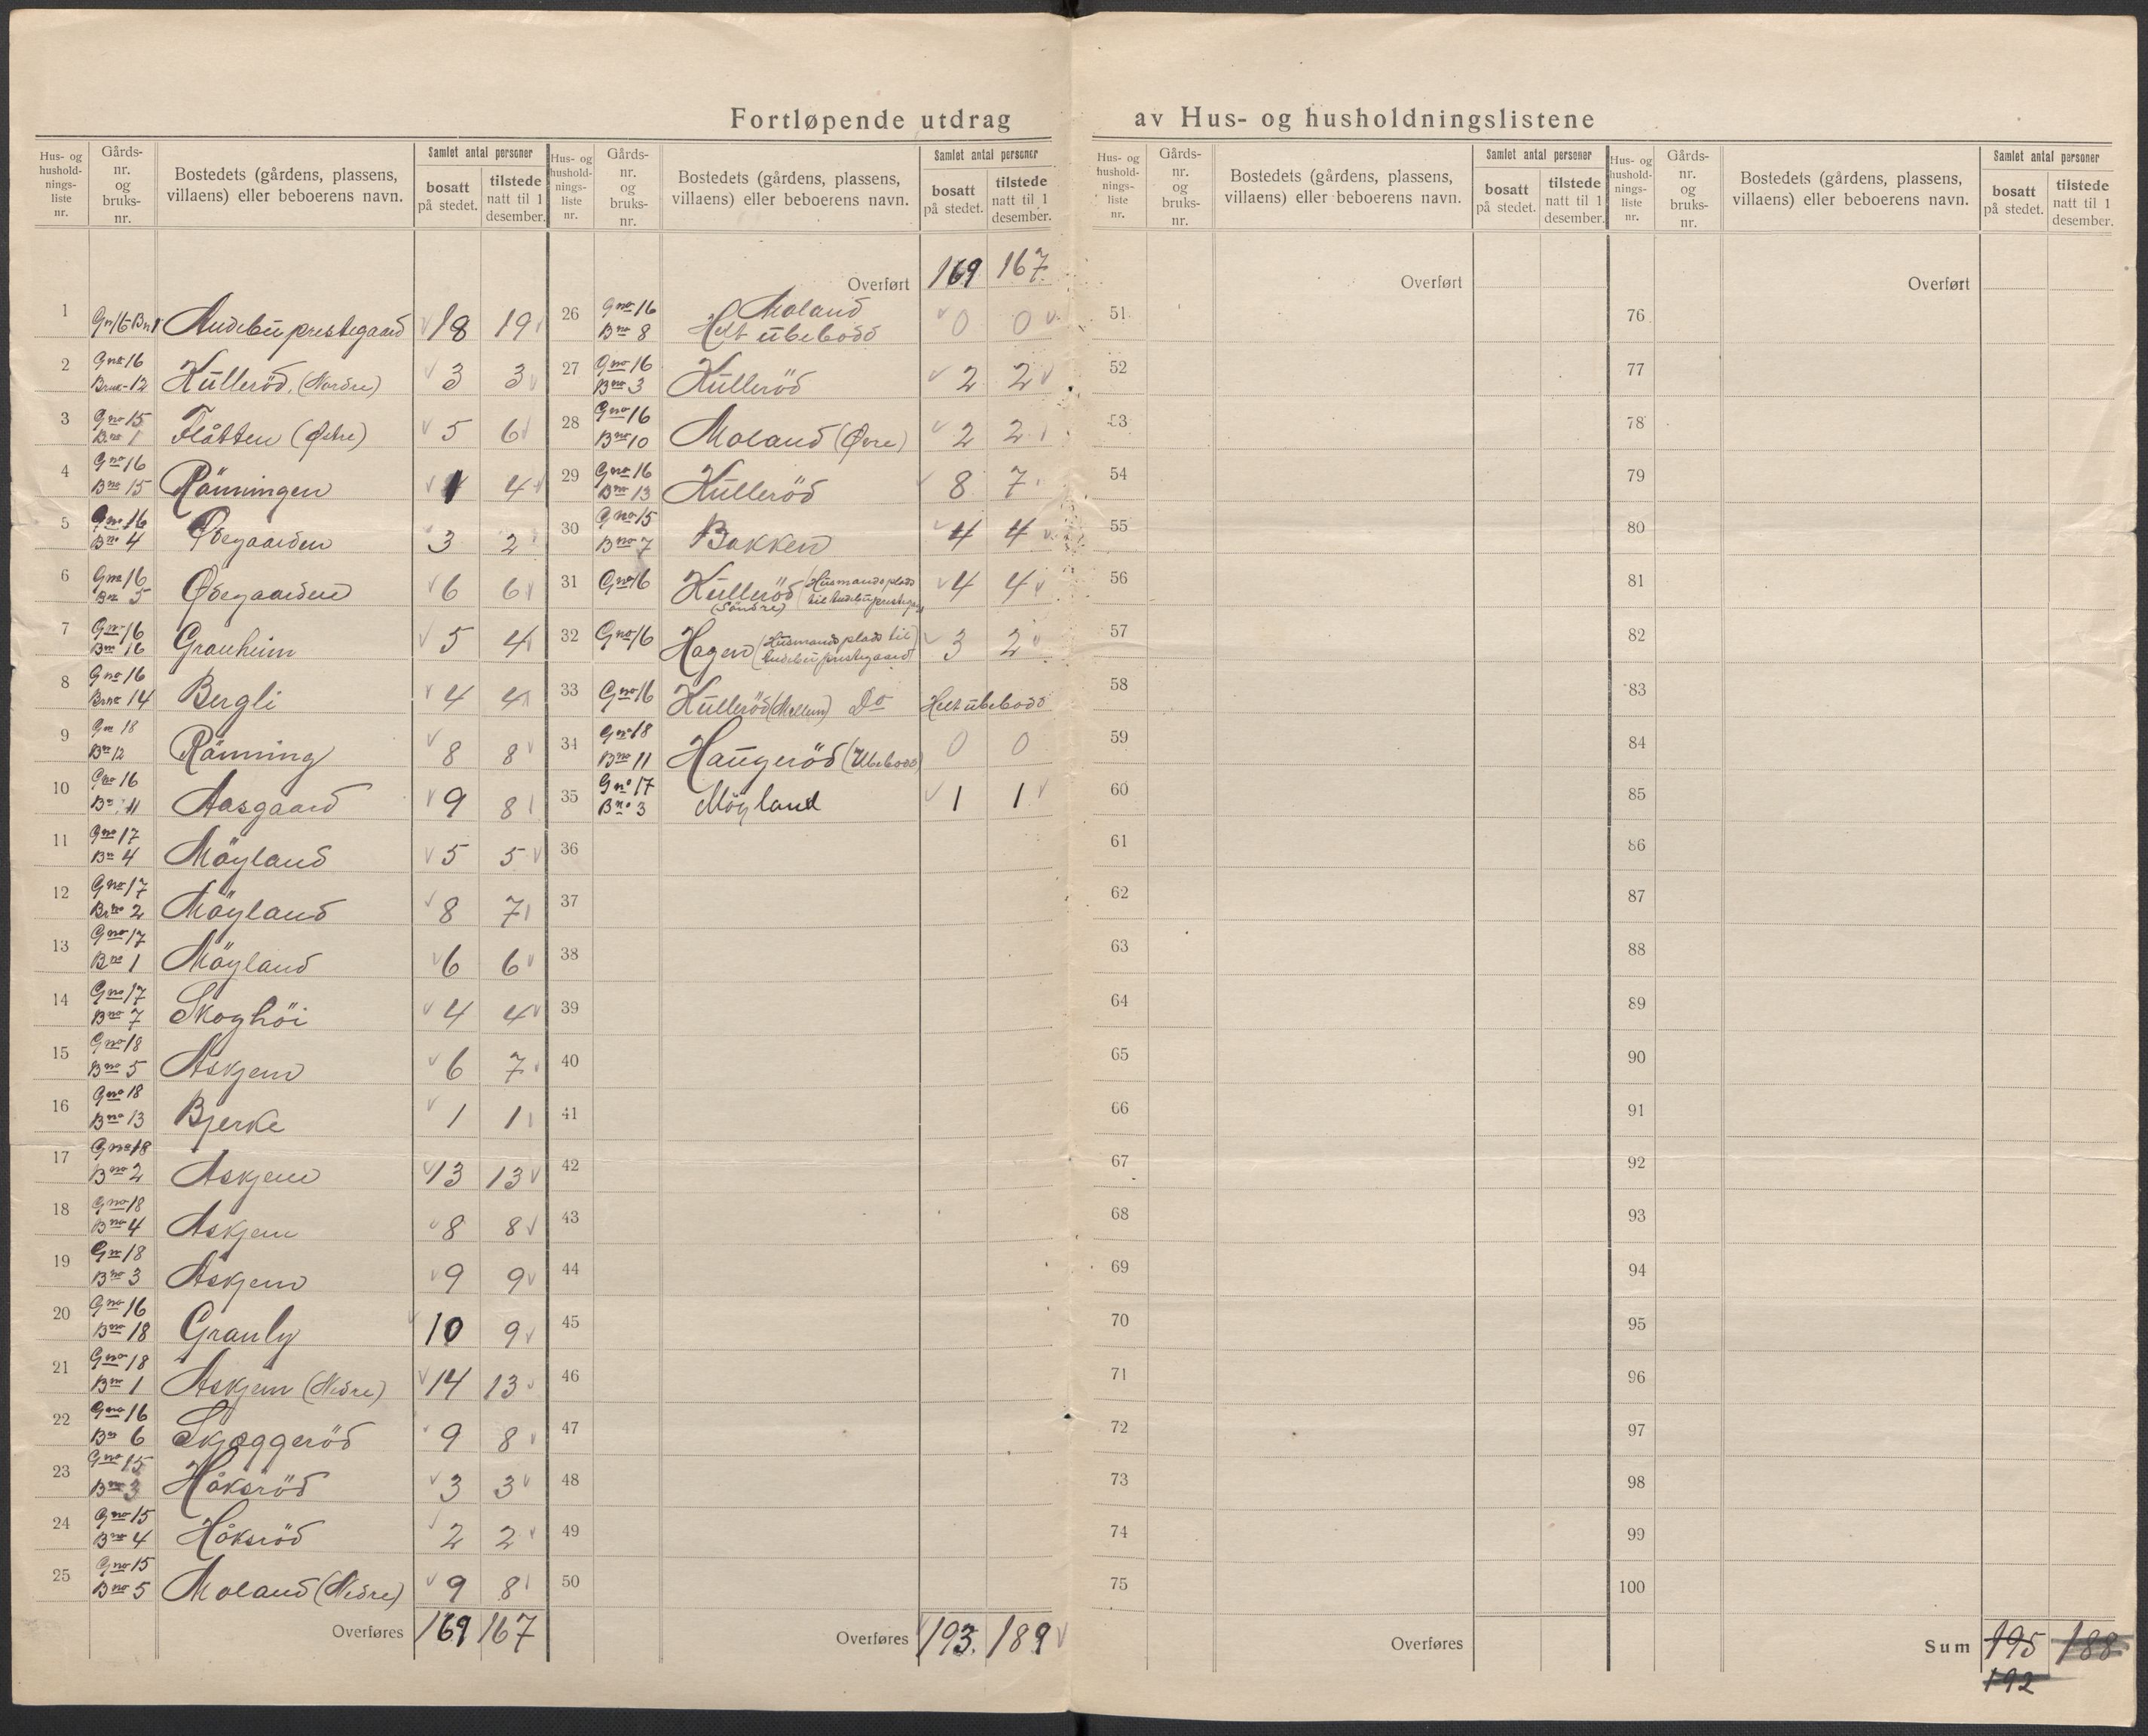 Fortløpende utdrag av Hus- og husholdningslistene
Hus- og hushold-nings-liste nr. | Gårds-nr. og bruks-nr. | Bostedets (gårdens, plassens, villaens) eller beboerens navn. | Samlet antal personer: bosatt på stedet. | tilstede natt til 1 desember.
1 Gn 16 Bn 1 Audebu prestegaard 18 19
2 Gno 16 Bruk-12 Kulleröd (Nordre) 3 3
3 Gno 15 Bno 1 Flåtten (Østre) 5 6
4 Gno 16 Bno 15 Rönningen 1 4
5 Gno 16 Bno 4 Ødegaarden 3 2
6 Gno 16 Bno 5 Ødegaarden 6 6
7 Gno 16 Bno 16 Granheim 5 4
8 Gno 16 Brno 14 Bergli 4 4
9 Gno 18 Bno 12 Rönning 8 8
10 Gno 16 Bno 11 Aasgaard 9 8
11 Gno 17 Bno 4 Möyland 5 5
12 Gno 17 Brno 2 Möyland 8 7
13 Gno 17 Bno 1 Möyland 6 6
14 Gno 17 Bno 7 Skoghöi 4 4
15 Gno 18 Bno 5 Askjem 6 7
16 Gno 18 Bno 13 Bjerke 1 1
17 Gno 18 Bno 2 Askjem 13 13
18 Gno 18 Bno 4 Askjem 8 8
19 Gno 18 Bno 3 Askjem 9 9
20 Gno 16 Bno 18 Granly 10 9
21 Gno 18 Bno 1 Askjem (Nedre) 14 13
22 Gno 16 Bno 6 Skjæggeröd 9 8
23 Gno 15 Bno 3 Håkaröd 3 3
24 Gno 15 Bno 4 Håksröd 2 2
25 Gno 15 Bno 5 Moland (Nedre) 9 8
Overføres 169 167
Hus- og hushold-nings-liste nr. | Gårds-nr. og bruks-nr. | Bostedets (gårdens, plassens, villaens) eller beboerens navn. | Samlet antal personer: bosatt på stedet. | tilstede natt til 1 desember.
Overført 169 167
26 Gno 16 Bno 8 Moland Helt ubebodd 0 0
27 Gno 16 Bno 3 Kulleröd 2 2
28 Gno 16 Bno 10 Moland (Øvre) 2 2
29 Gno 16 Bno 13 Kulleröd 8 7
30 Gno 15 Bno 7 Bakken 4 4
31 Gno 16 Kulleröd (Söndre) (Husmandsplads til Audebu prestegaard) 4 4
32 Gno 16 Hagen (Husmandsplads til Audebu prestegaard) 3 2
33 Gno 16 Kulleröd (Mellem) Do Helt ubebodd
34 Gno 18 Bno 11 Haugeröd (Ubebodd) 0 0
35 Gno 17 Bno 3 Möyland 1 1
36
37
38
39
40
41
42
43
44
45
46
47
48
49
50
Overføres 193. 189
Hus- og hushold-nings-liste nr. | Gårds-nr. og bruks-nr. | Bostedets (gårdens, plassens, villaens) eller beboerens navn. | Samlet antal personer: bosatt på stedet. | tilstede natt til 1 desember.
Overført
51
52
53
54
55
56
57
58
59
60
61
62
63
64
65
66
67
68
69
70
71
72
73
74
75
Overføres
Hus- og hushold-nings-liste nr. | Gårds-nr. og bruks-nr. | Bostedets (gårdens, plassens, villaens) eller beboerens navn. | Samlet antal personer: bosatt på stedet. | tilstede natt til 1 desember.
Overført
76
77
78
79
80
81
82
83
84
85
86
87
88
89
90
91
92
93
94
95
96
97
98
99
100
Sum 195 188
192